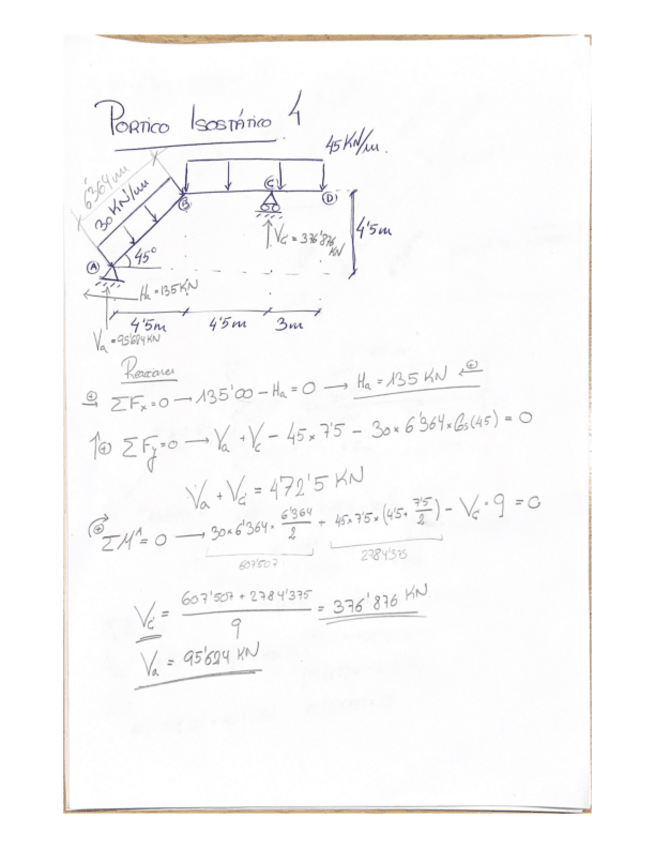 PORTICO ISOSTÁTICO 4
45 KN/m.
6'364 m
30 KN/m
B
C
D
A
45º
Vc = 376'876 KN
4'5m
Ha = 135 KN
4'5m 4'5m 3m
Va = 95'624 KN
Reacciones
⊕ ΣFx=0 → 135'00 - Ha = 0 → Ha = 135 KN ⊕
↑⊕ ΣFy=0 → Va + Vc - 45 × 7'5 - 30 × 6'364 × Cos(45) = 0
Va + Vc = 472'5 KN
⊕ ΣM^A = 0 → 30×6'364· 6'364/2 + 45×7'5×(4'5+ 7'5/2) - Vc · 9 = 0
607'507 2784'375
Vc = 607'507 + 2784'375 / 9 = 376'876 KN
Va = 95'624 KN